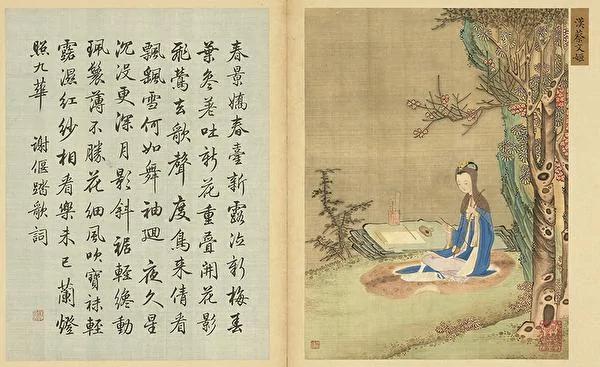 漢蔡文姬
春景嬌春臺新露泣新梅春
葉參差吐新花重疊開花影
飛鶯去歌聲度鳥來倩看
飄颻雪何如舞袖迴 夜久星
沉沒更深月影斜裾輕纔動
珮鬟薄不勝花細風吹寶袜輕
露濕紅紗相看樂未已蘭燈
照九華 謝偃踏歌詞